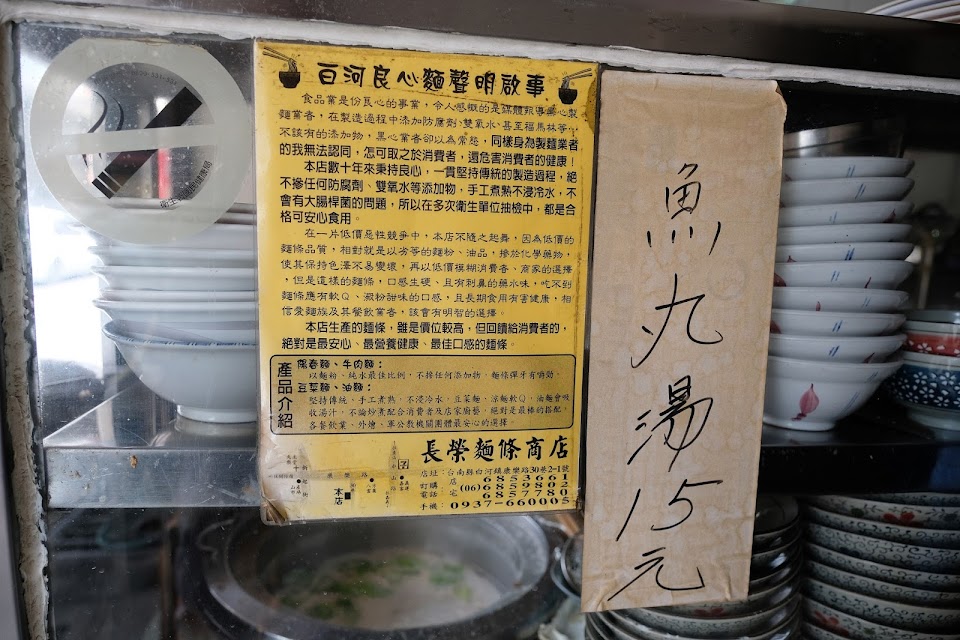 百河良心麵聲明啟事
食品業是份良心的事業,令人感慨的是媒體報導黑心製
麵業者,在製造過程中添加防腐劑、雙氧水、甚至福馬林等..
不該有的添加物,黑心業者卻以為常態,同樣身為製麵業者
的我無法認同,怎可取之於消費者,還危害消費者的健康!
本店數十年來秉持良心,一貫堅持傳統的製造過程,絕
不摻任何防腐劑、雙氧水等添加物,手工煮熟不浸冷水,不
會有大腸桿菌的問題,所以在多次衛生單位抽檢中,都是合
格可安心食用。
在一片低價惡性競爭中,本店不隨之起舞,因為低價的
麵條品質,相對就是以劣等的麵粉、油品,摻於化學藥物,
使其保持色澤不易變壞,再以低價模糊消費者、商家的選擇
,但是這樣的麵條,口感生硬、且有刺鼻的藥水味,吃不到
麵條應有軟Q、澱粉甜味的口感,且長期食用有害健康,相
信愛麵族及其餐飲業者,該會有明智的選擇。
本店生產的麵條,雖是價位較高,但回饋給消費者的,
絕對是最安心、最營養健康、最佳口感的麵條。
產品介紹
陽春麵、牛肉麵:
以麵粉、純水最佳比例,不摻任何添加物,麵條彈牙有嚼勁。
豆菜麵、油麵:
堅持傳統,手工煮熟,不浸冷水,豆菜麵、涼麵軟Q,油麵會吸
收湯汁,不論炒煮配合消費者及店家廚藝,絕對是最棒的搭配,
各餐飲業、外燴、軍公教機關團體最安心的選擇。
長榮麵條商店
店址:台南縣白河鎮康樂路30巷2-1號
訂購電話
店 6853661
(06)6859802
宅 6857780
手機:0937-660005
本店
魚丸湯15元